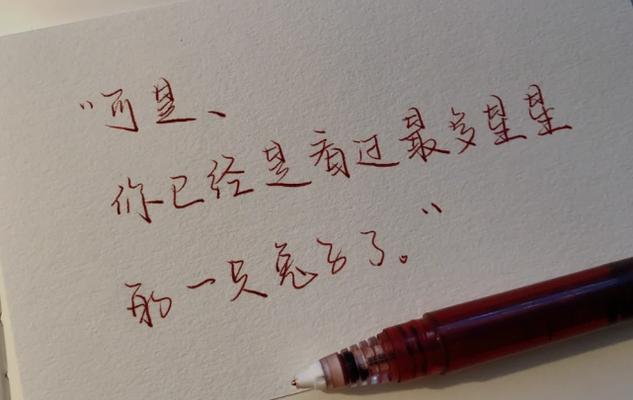 “可是、
你已经是看过最多星星
的一只兔子了。”